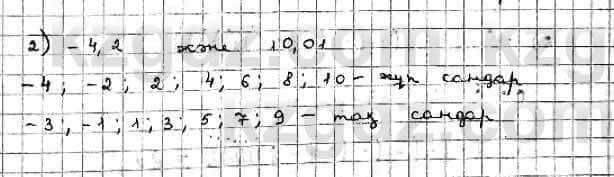 2) -4,2 және 10,01
-4; -2; 2; 4; 6; 8; 10 - жұп сандар
-3; -1; 1; 3; 5; 7; 9 - тақ сандар